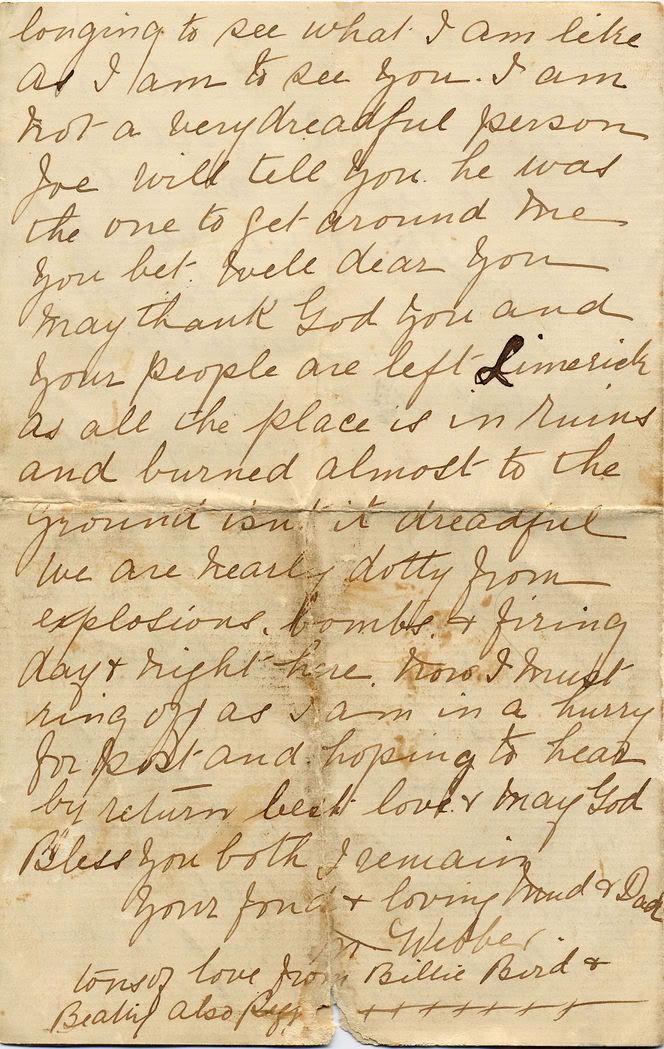 longing to see what I am like
as I am to see you. I am
not a very dreadful person
Joe will tell you. he was
the one to get around me
you bet. Well dear you
may thank God you and
your people are left Limerick
as all the place is in ruins
and burned almost to the
ground isn't it dreadful
we are nearly dotty from
explosions, bombs, & firing
day & night here. Now I must
ring off as I am in a hurry
for post and hoping to hear
by return best love & may God
Bless you both I remain
Your fond & loving Mud & Dad
Webber.
tons of love from Billie Bird &
also
+ + + + + + + +